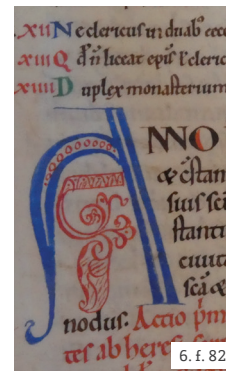 xii Ne clericus in duab' ecce
xiii Qd n̄ liceat epīs l'cleric
xiiii Duplex monasterium
ANNO
& c̄stan
suis sc̄i
stanti
ciuita
sc̄a &
nodus. Actio pīm
tes ab heres
6. f. 82